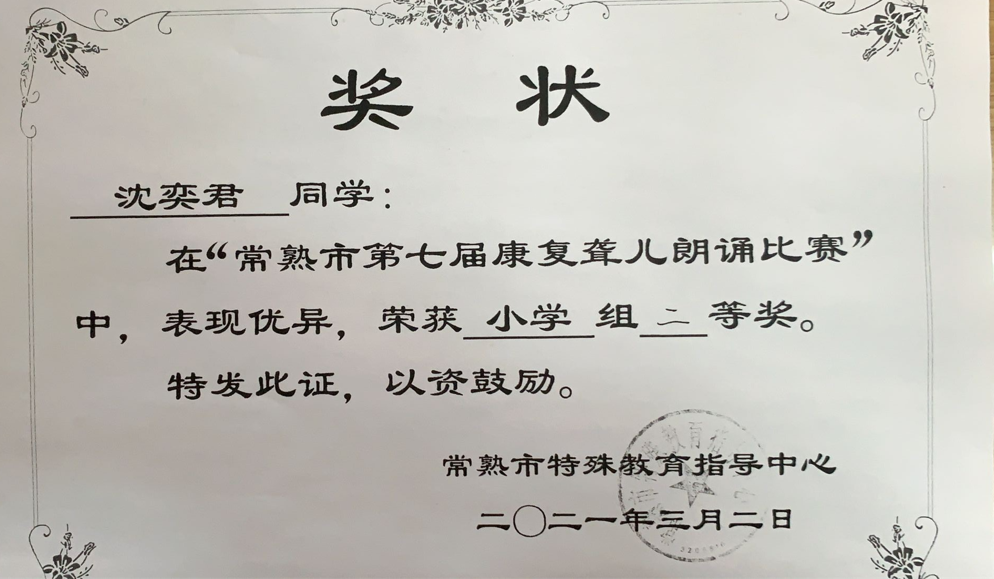 奖 状
沈奕君 同学：
在“常熟市第七届康复聋儿朗诵比赛”
中，表现优异，荣获 小学 组 二 等奖。
特发此证，以资鼓励。
常熟市特殊教育指导中心
二〇二一年三月二日